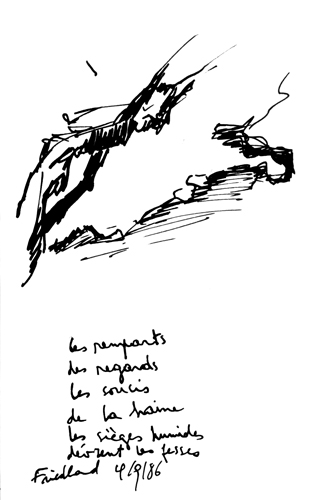 les remparts
des regards
les soucis
de la haine
les sièges humides
dévorent les fesses
Friedland 4/9/86